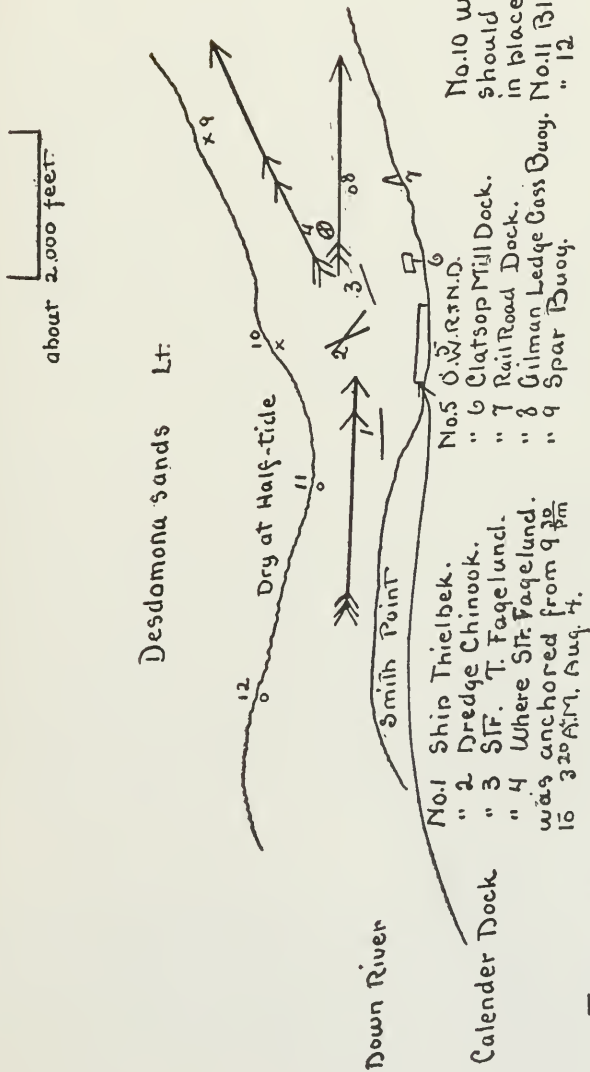 about 2.000 feet.
Desdomona Sands Lt.
Dry at Half-tide
12
11
10
x
x 9
4
8
3
2
1
7
6
5
Smith Point
Down River
Calender Dock
No.1 Ship Thielbek.
" 2 Dredge Chinook.
" 3 Str. T. Fagelund.
" 4 Where Str. Fagelund.
was anchored from 9 30 pm
to 3 20 A.M. Aug. 4.
No.5 O.W.R.+N.D.
" 6 Clatsop Mill Dock.
" 7 Rail Road Dock.
" 8 Gilman Ledge Cass Buoy.
" 9 Spar Buoy.
No.10
should
in place
No.11
" 12